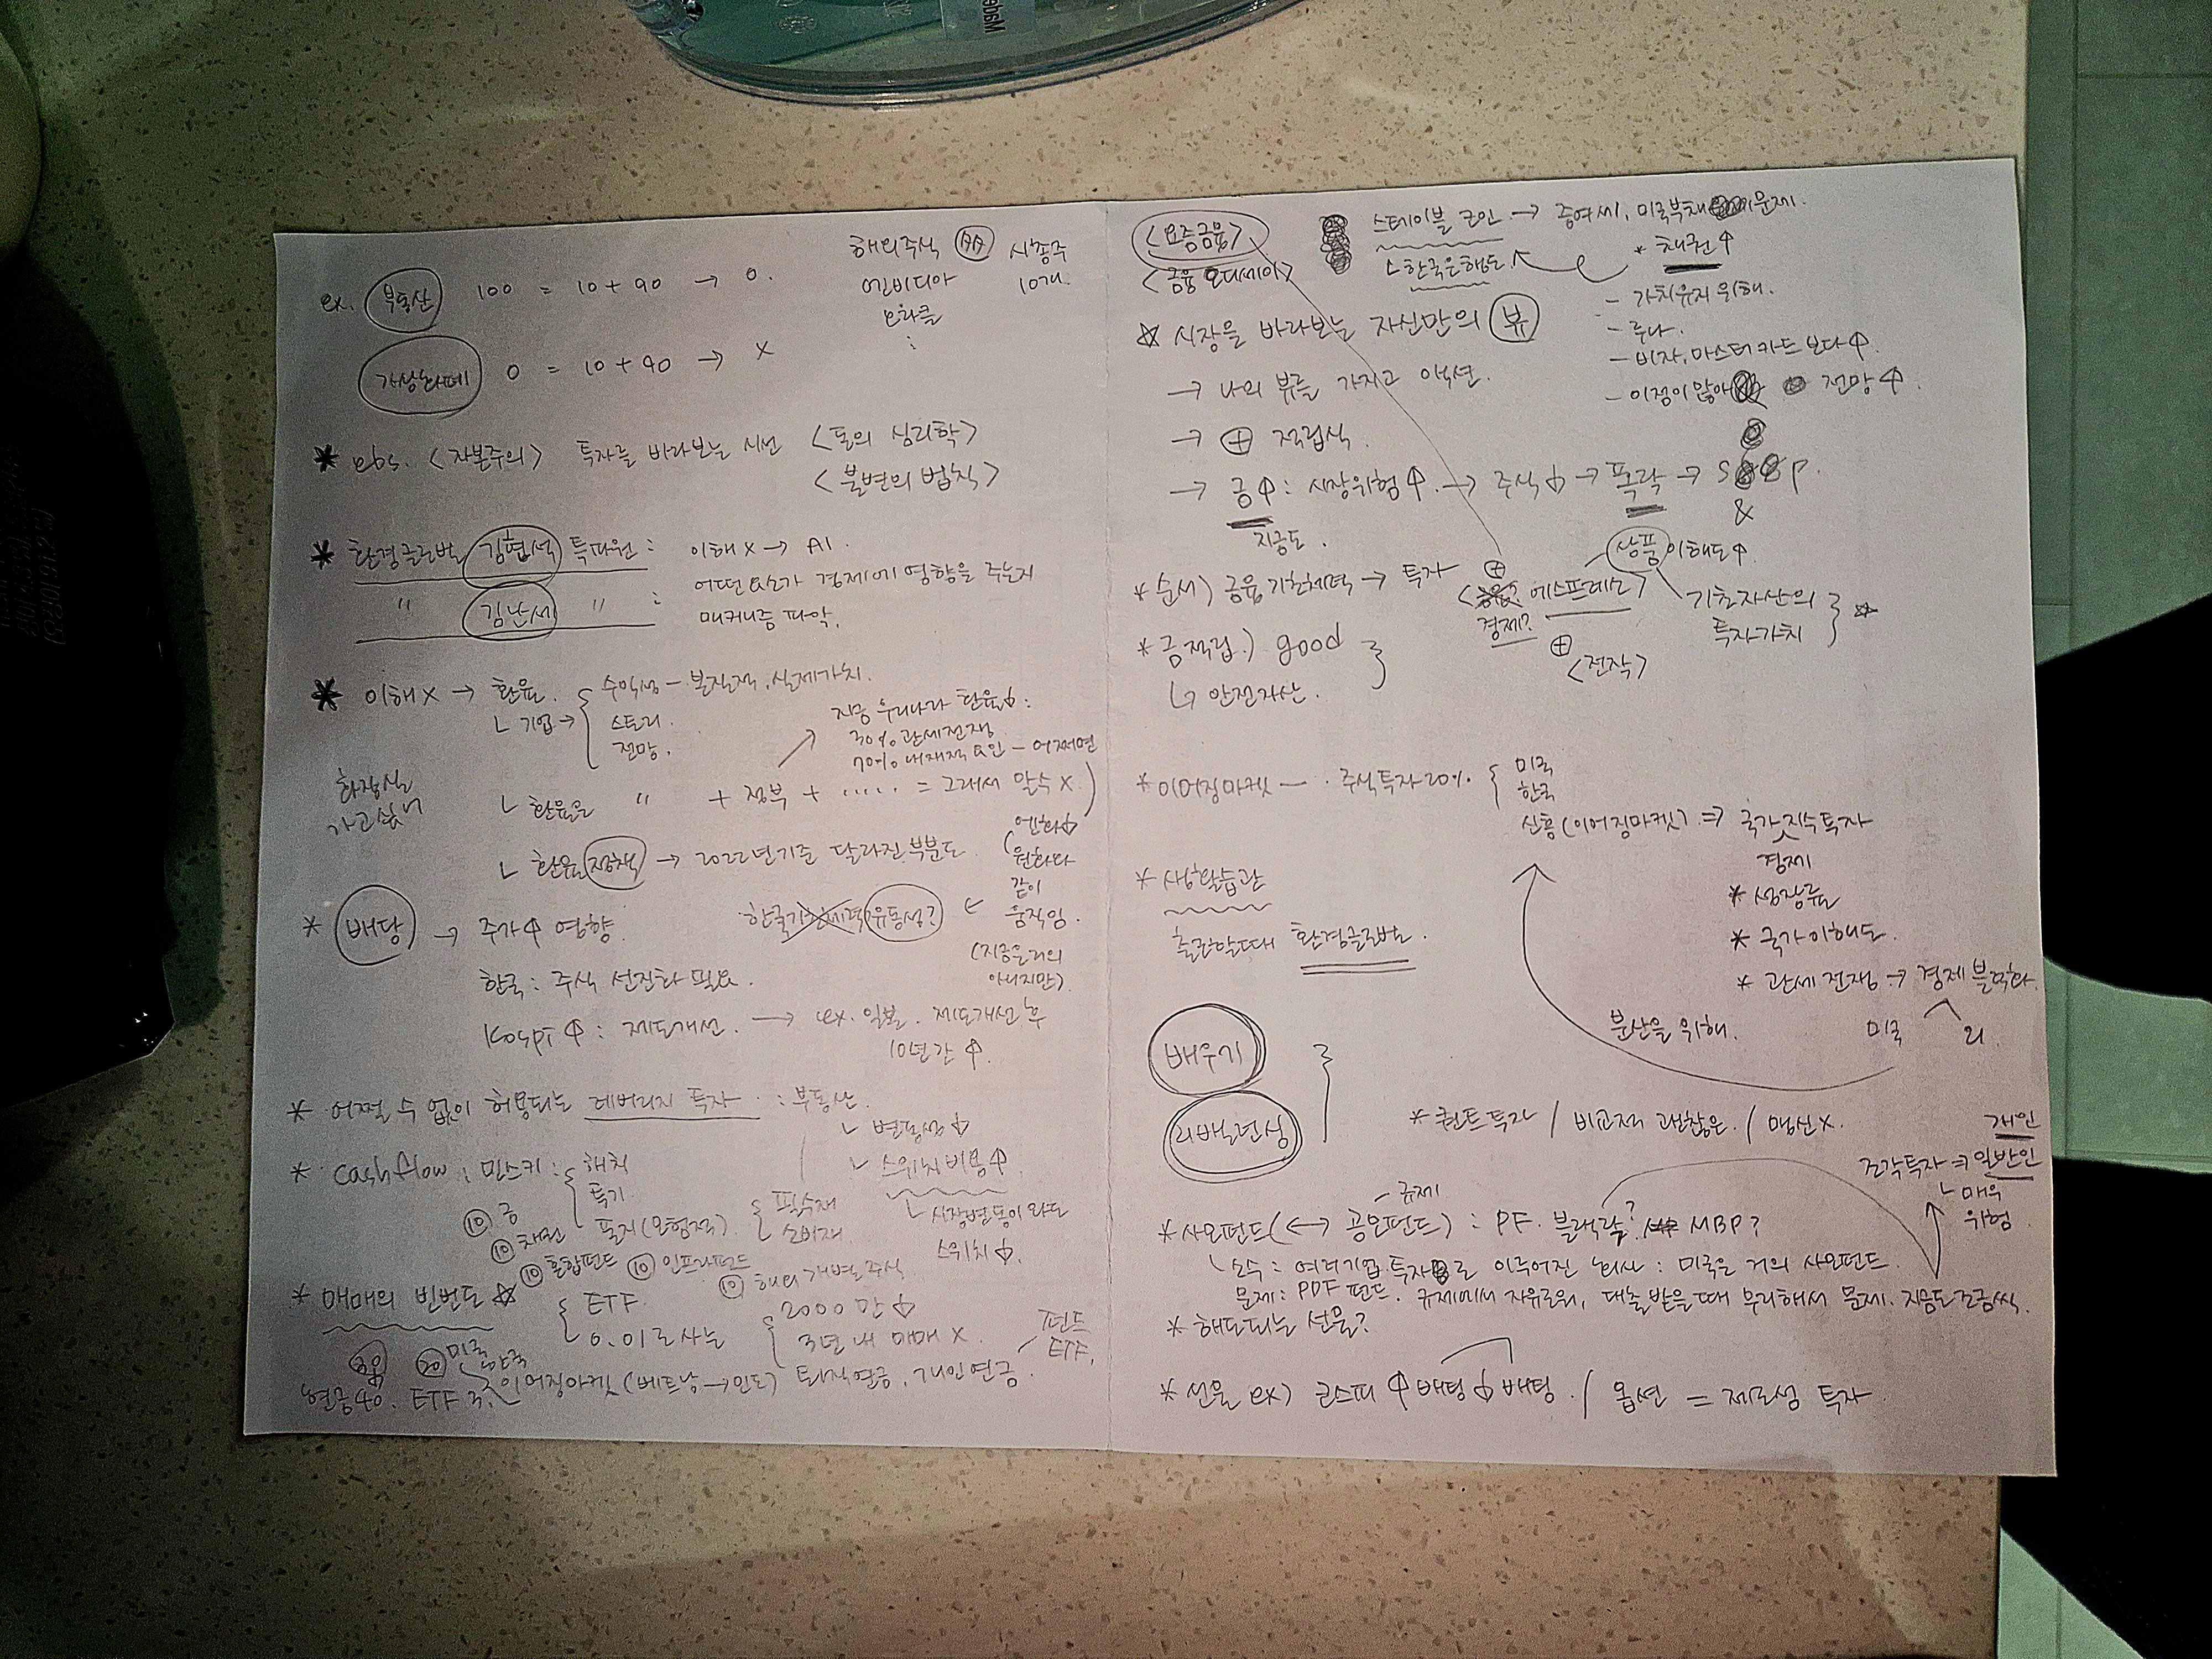 ex. 부동산 100 = 10 + 90 → 0.
가상화폐 0 = 10 + 90 → X
해외주식 시총주
엔비디아 10개.
오라클
:
* ebs. <자본주의> 투자를 바라보는 시선 <돈의 심리학>
<불변의 법칙>
* 한경글로벌 김현석 특파원 : 이해 X → AI.
어떤 요소가 경제에 영향을 주는지
" 김난세 " : 매커니즘 파악.
* 이해 X → 환율. 수익성 - 본질적, 실제가치.
ㄴ 기업 → 스토리.
전망.
지금 우리나라 환율↓:
30% 관세전쟁
70% 내재적 요인 - 어쩌면
화장실
가고싶네
ㄴ 환율은 " + 정부 + ····· = 그래서 알수 X.
ㄴ 환율 정책 → 2022년 기준 달라진 부분도.
(엔화↓
원화와
같이
움직임.
(지금은 거의
아니지만)
유동성? ←
* 배당 → 주가↑ 영향.
한국 : 주식 선진화 필요.
Kospi ↑ : 제도개선. → ex. 일본. 제도개선 후
10년간 ↑.
* 어쩔 수 없이 허용되는 레버리지 투자. : 부동산.
ㄴ 변동성↑
ㄴ 스위치 비용↑.
ㄴ 시장변동이 와도
스위치↓.
* cashflow : 민스키 : 헤지
투기
폰지(모험적) 필수재
소비재.
⑩ 금
⑩ 채권
⑩ 혼합펀드 ⑩ 인프라펀드
⑩ 해외개별주식
* 매매의 빈번도 ☆ ETF. 2000만↓
0.01로 사는 3년 내 매매 X.
펀드
ETF.
⑳ 미국
한국
현금40. ETF 3. 이머징마켓 (베트남 → 인도) 퇴직연금, 개인연금.
<요즘금융> 스테이블 코인 → 증여세, 미국부채 문제.
<금융 오디세이> ㄴ 한국은행도. * 채권↑
- 가치유지 위해.
- 루나.
- 비자, 마스터 카드 보다↑.
- 이점이 많아 전망↑.
☆ 시장을 바라보는 자신만의 뷰
→ 나의 뷰를 가지고 액션.
→ ⊕ 적립식.
→ 금↑ : 시장위험↑. → 주식↓ → 폭락 → S & P.
지금도.
* 순서) 금융 기초체력 → 투자 ⊕ 상품 이해도↑.
< 에스프레소>
경제?
⊕
<전작>
기초자산의
투자가치 ☆
* 금적립.) good
ㄴ 안전자산.
* 이머징마켓 - · 주식투자 20%. 미국
한국
신흥 (이머징마켓). ⇒ 국가 지수투자
경제
* 성장률
* 국가이해도.
* 관세전쟁 → 경제 블럭화.
미국 러.
분산을 위해.
* 생활습관
출근할때 한경글로벌.
배우기
리밸런싱
* 퀀트투자 / 비교적 괜찮은. / 맹신X.
개인
조각투자 ⇒ 일반인
ㄴ 매우
위험.
- 규제
* 사모펀드 (↔ 공모펀드) : PF. 블랙락? MBP?
ㄴ 소수 : 여러기업 투자 로 이루어진 회사 : 미국은 거의 사모펀드.
문제 : PDF 펀드. 규제에서 자유로워, 대출받을때 무리해서 문제. 지금도 조금씩.
* 해도되는 선물?
* 선물 ex) 코스피 ↑ 배팅 ↓ 배팅. / 옵션 = 제로섬 투자